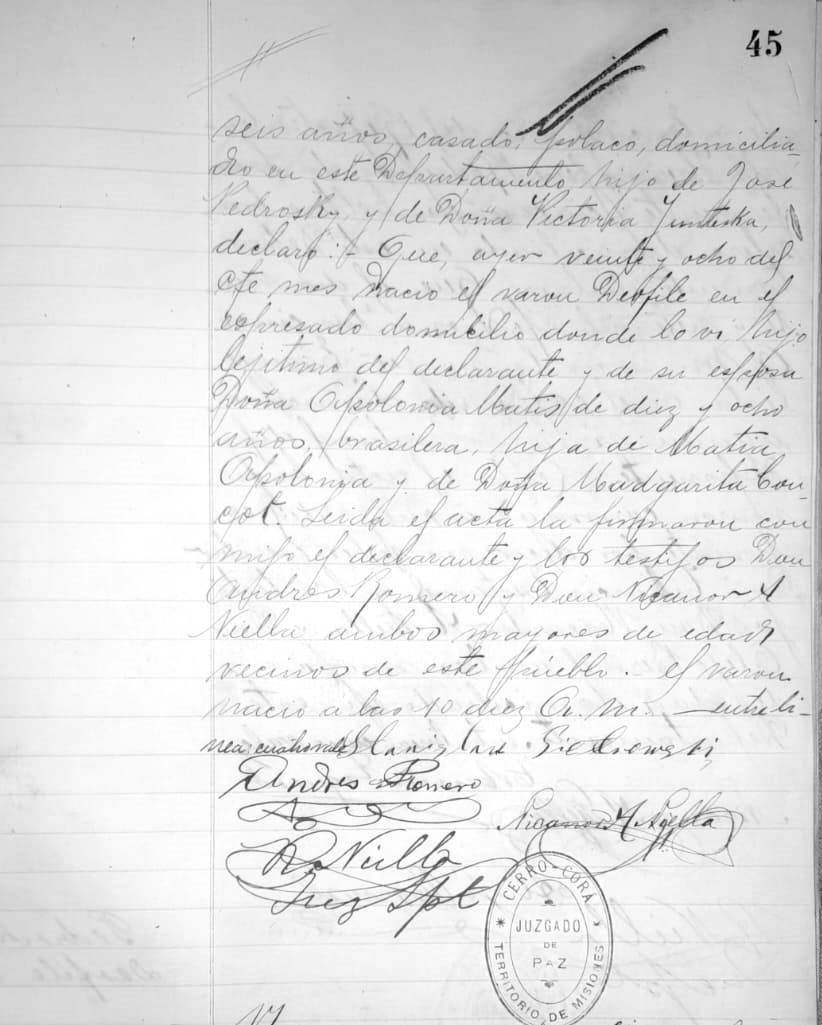 45
seis años, casado, polaco, domicilia-
do en este Departamento, hijo de José
Pedrosky y de Doña Victoria
declaró:- Que, ayer veinte y ocho del
cte mes nació el varon Deofile en el
espresado domicilio donde lo vi hijo
lejitimo del declarante y de su esposa
Doña Apolonia Matis de diez y ocho
años, brasilera, hija de Matia
Apolonia y de Doña Madgarita
Leida el acta la firmaron con
migo el declarante y los testigos Don
Andres Romero y Don Nicanor A
Niella ambos mayores de edad
vecinos de este pueblo.- el varon
nacio a las 10 diez A. m. — entre li-
nea: Stanislad
Andres Romero
Nicanor A Niella
R. Niella
Juez Spt
CERRO-CORÁ
JUZGADO
DE
PAZ
TERRITORIO DE MISIONES